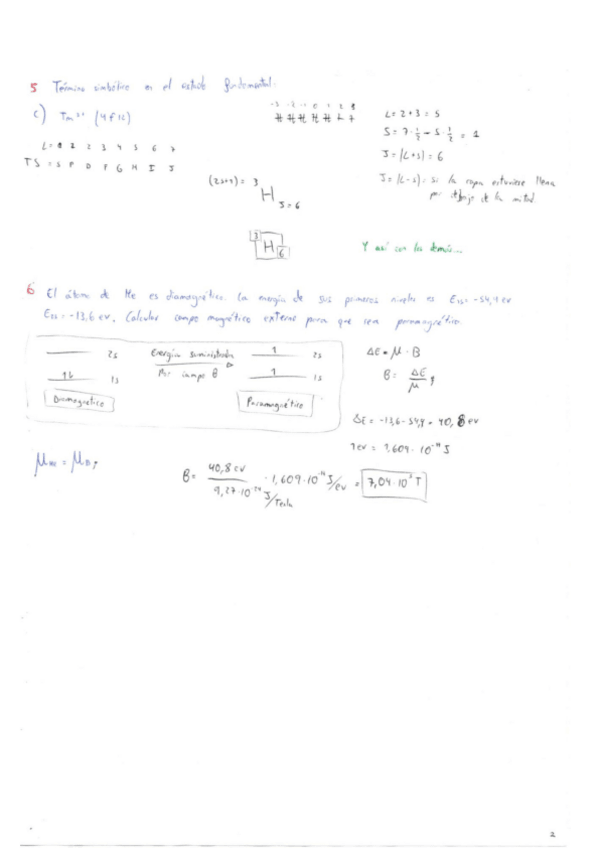 5 Término simbólico en el estado fundamental:
c) Tm³⁺ (4f12)
-3 -2 -1 0 1 2 3
L = 2+3 = 5
S = 7·1/2 - 5·1/2 = 1
J = |L+S| = 6
J = |L-S| = si la capa estuviese llena
por debajo de la mitad.
L = 0 1 2 3 4 5 6 7
TS = S P D F G H I J
(2S+1) = 3 H J=6
3 H 6
Y así con los demás...
6 El átomo de He es diamagnético. La energía de sus primeros niveles es E1s = -54,4 eV
E2s = -13,6 eV. Calcular campo magnético externo para que sea paramagnético.
2s Energía suministrada 1 2s
1L 1s Por campo B 1 1s
Diamagnético Paramagnético
ΔE = μ · B
B = ΔE/μ
ΔE = -13,6-54,4 = 40,8 eV
1 eV = 1,609 · 10⁻¹⁹ J
B = 40,8 eV / 9,27·10⁻²⁴ J/Tesla · 1,609·10⁻¹⁹ J/eV = 7,04·10⁵ T
2